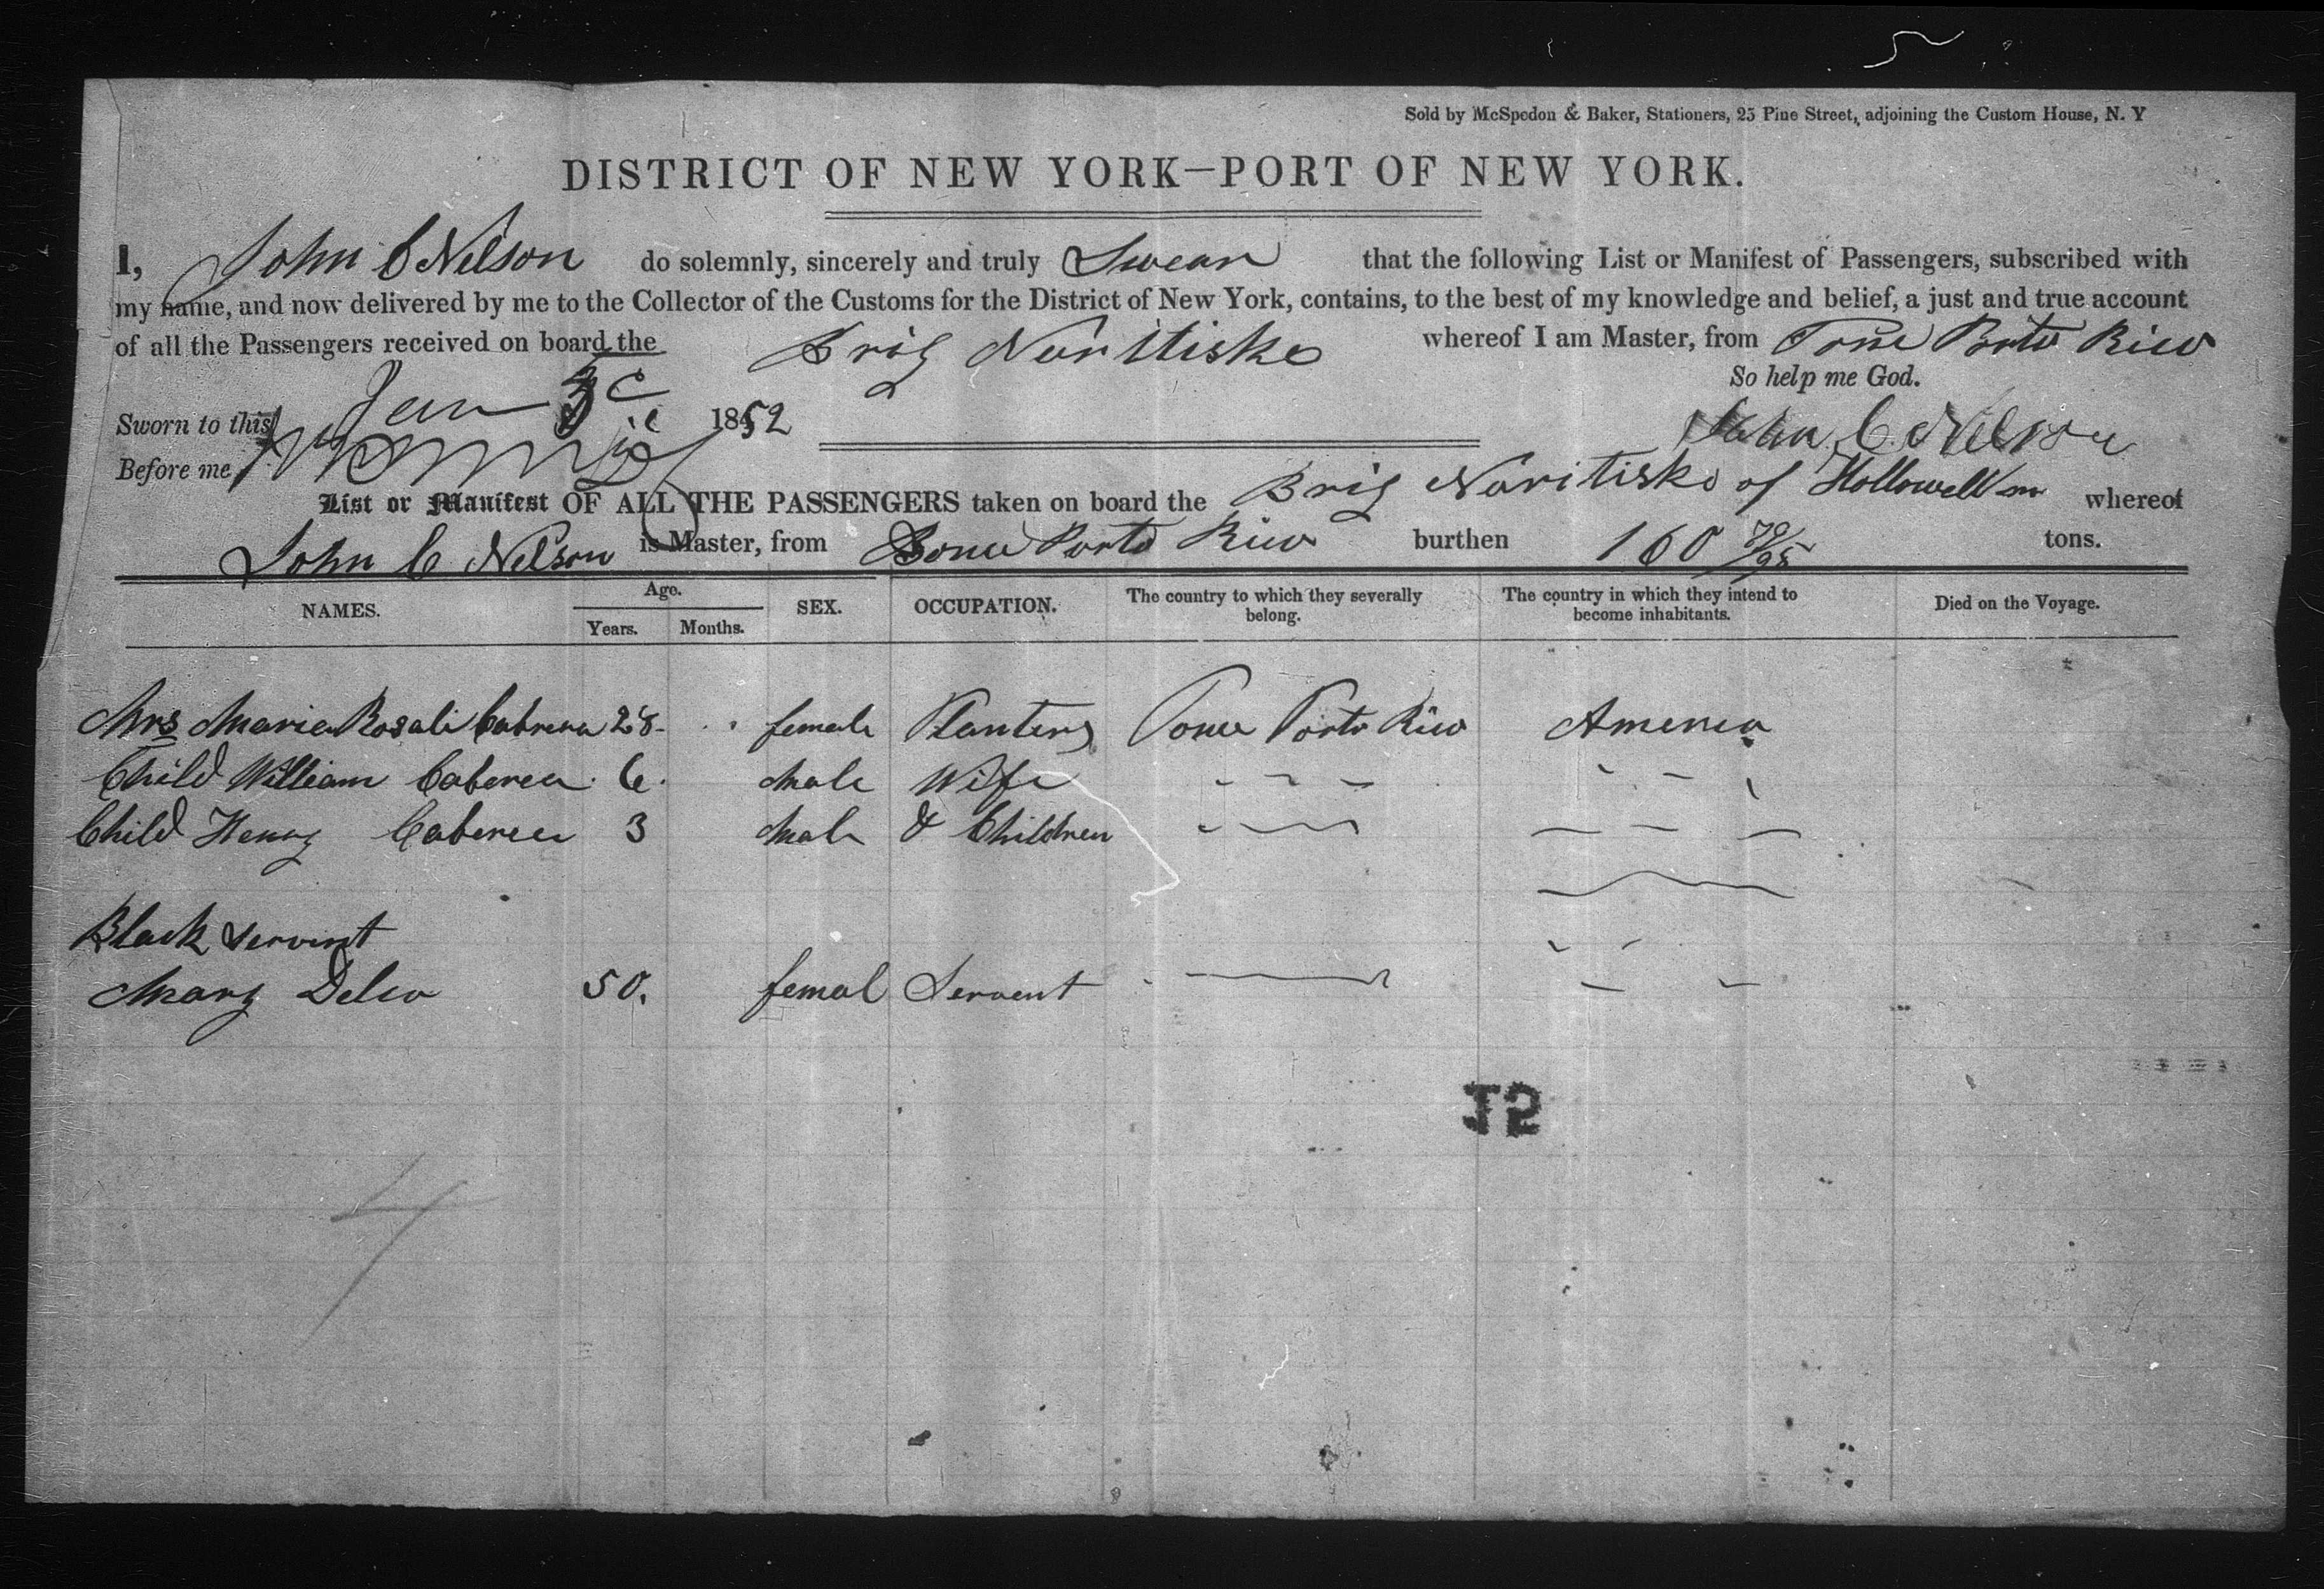 Sold by McSpedon & Baker, Stationers, 25 Pine Street, adjoining the Custom House, N. Y
DISTRICT OF NEW YORK—PORT OF NEW YORK.
I, John C Nelson do solemnly, sincerely and truly Swear that the following List or Manifest of Passengers, subscribed with
my name, and now delivered by me to the Collector of the Customs for the District of New York, contains, to the best of my knowledge and belief, a just and true account
of all the Passengers received on board the Brig Noritisko whereof I am Master, from Ponce Porto Rico
So help me God.
Sworn to this Jan 1852
John C. Nelson
Before me
List or Manifest OF ALL THE PASSENGERS taken on board the Brig Noritisko of Hollowell whereof
John C Nelson is Master, from Ponce Porto Rico burthen 160 70/95 tons.
NAMES. Age. Years. Months. SEX. OCCUPATION. The country to which they severally belong. The country in which they intend to become inhabitants. Died on the Voyage.
Mrs Maria Rosali Cabrera 28 female Planters Ponce Porto Rico America
Child William Caberea 6 Male Wife
Child Henry Caberea 3 Male & Children
Black Servent
Mary 50. femal Servent
15
4